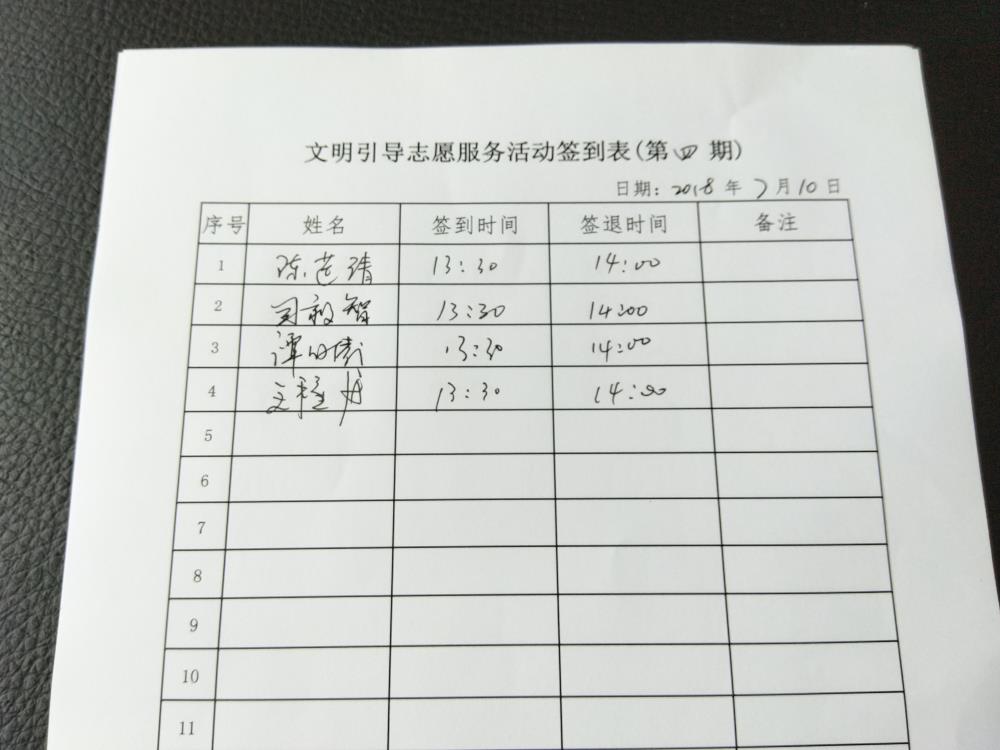 文明引导志愿服务活动签到表(第四期)
日期: 2018年7月10日
序号 姓名 签到时间 签退时间 备注
1 陈莲清 13:30 14:00
2 13:30 14:00
3 13:30 14:00
4 13:30 14:00
5
6
7
8
9
10
11